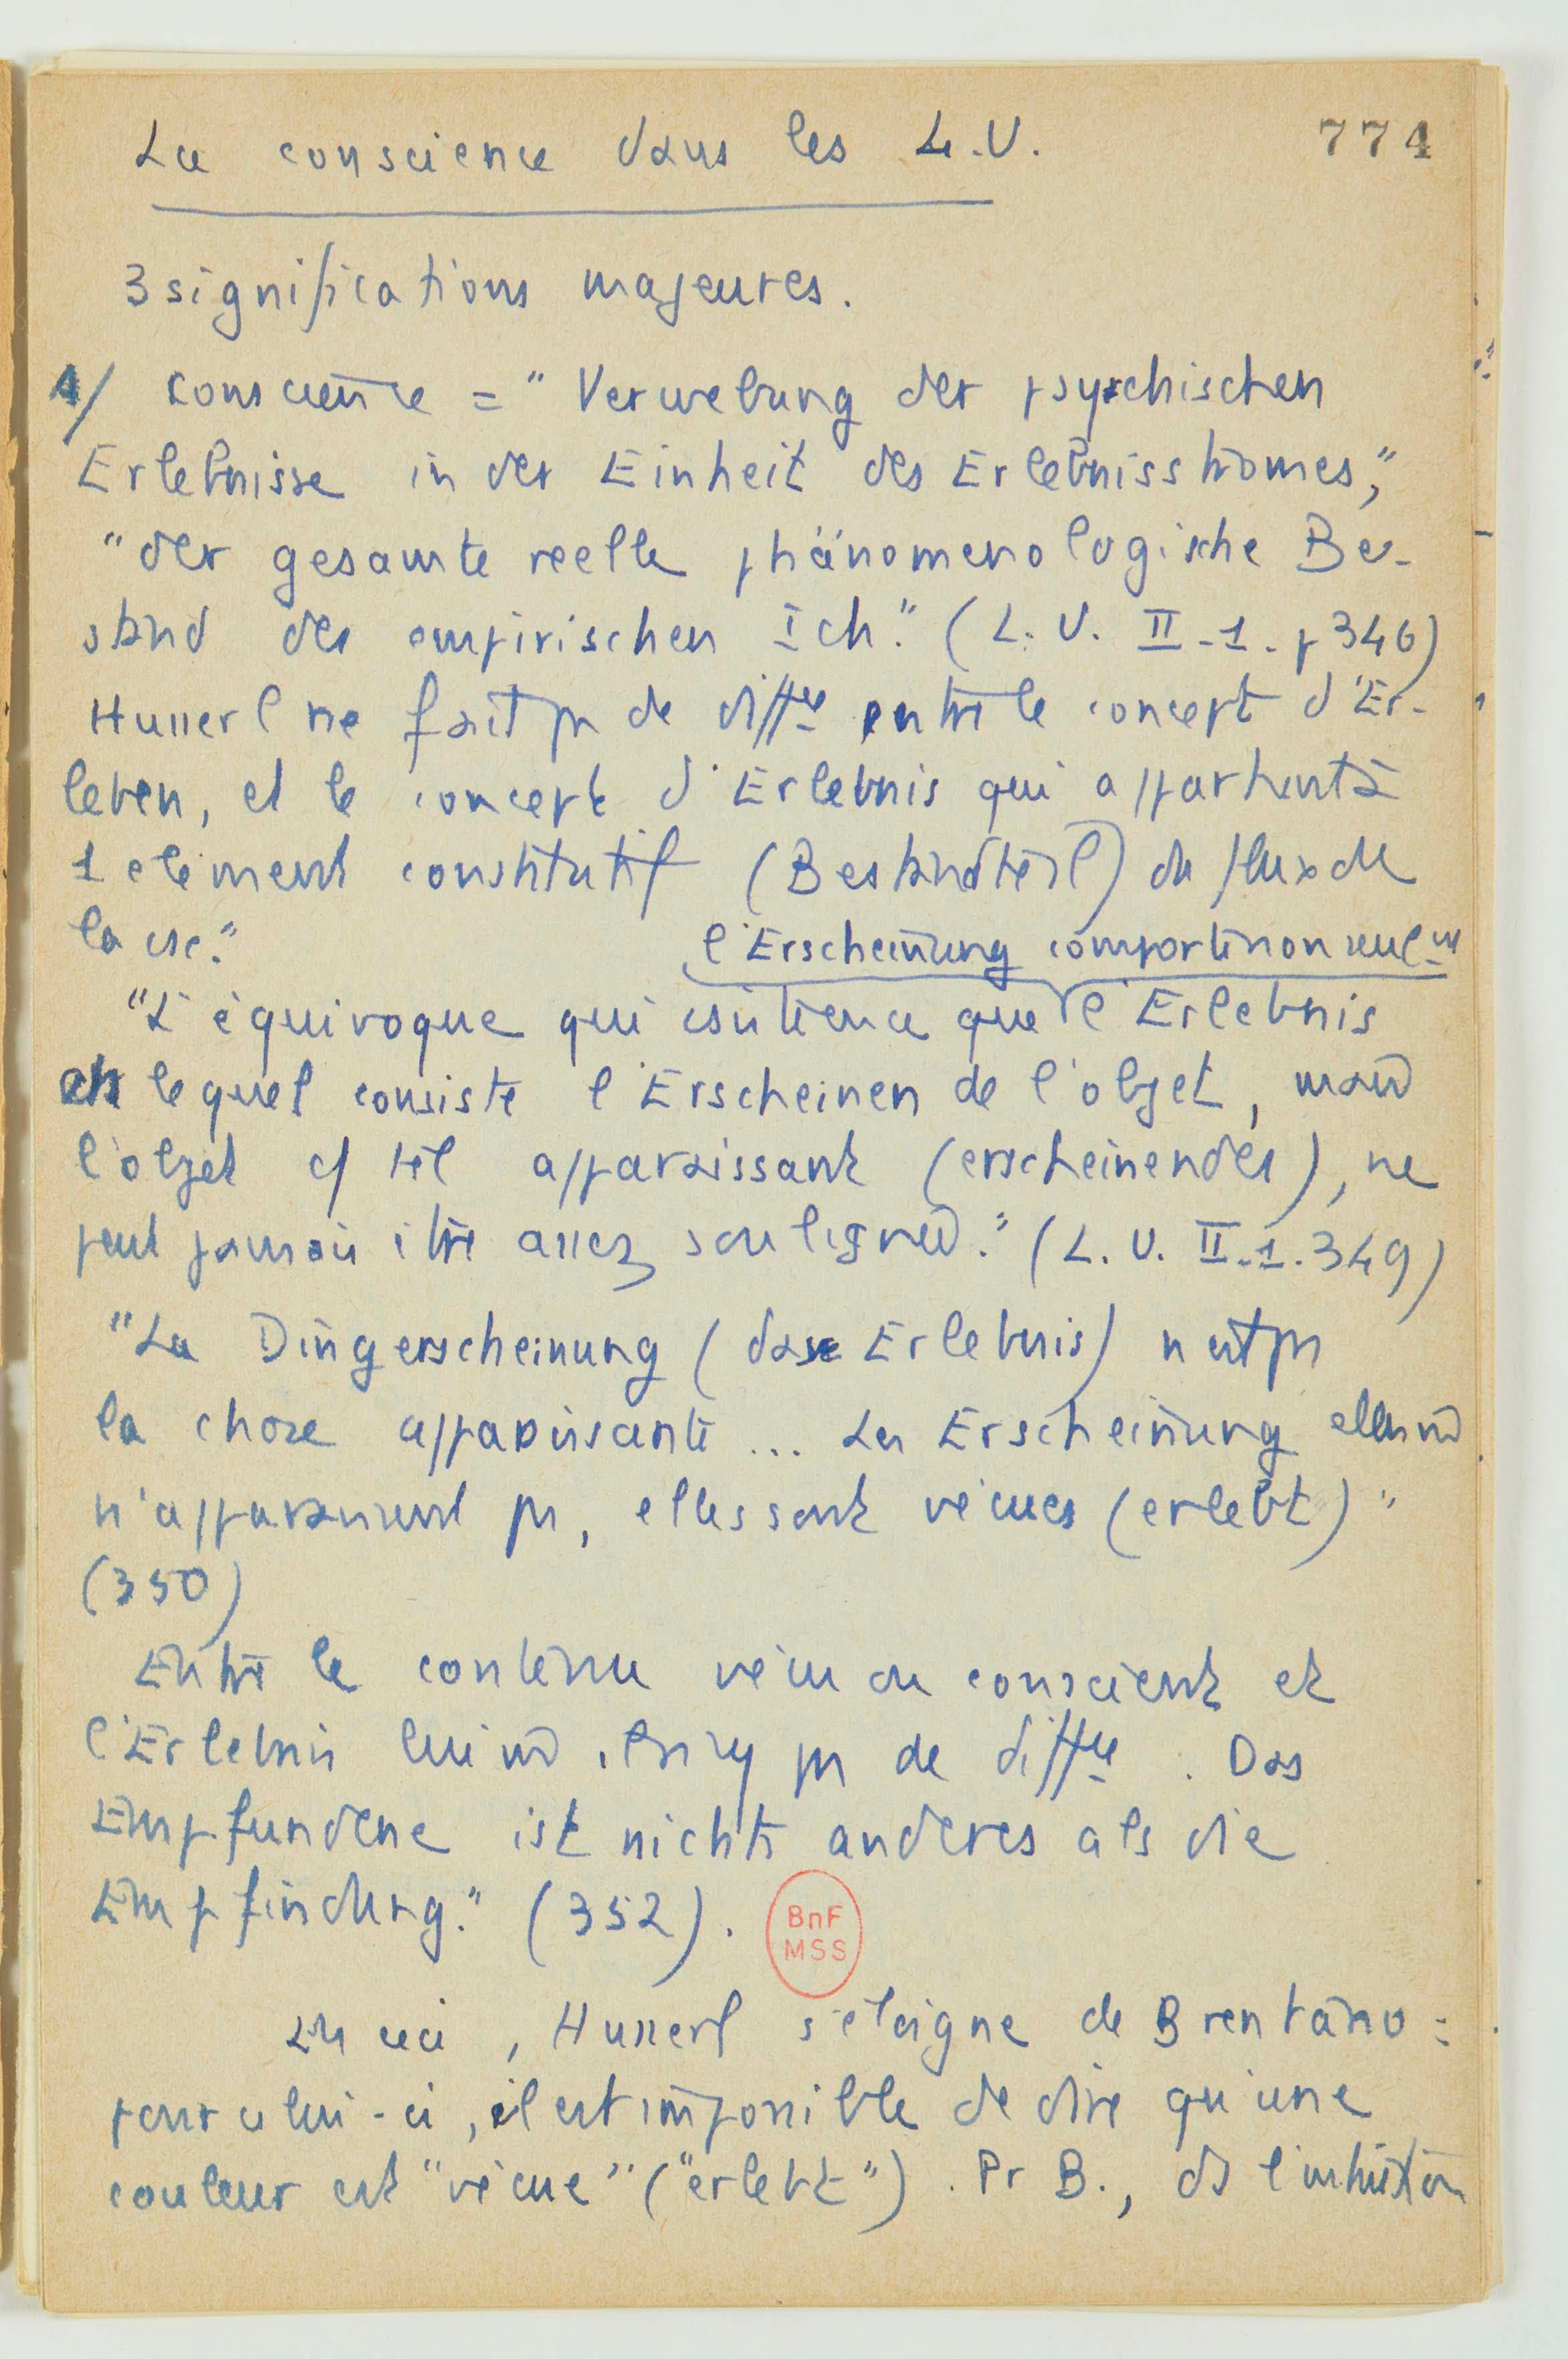 La conscience dans les L.U.
774
3 significations majeures.
1/ conscience = "Verwebung der psychischen
Erlebnisse in der Einheit des Erlebnisstromes,"
"der gesamte reelle phänomenologische Be-
stand des empirischen Ich." (L.U. II-1. p 346)
Husserl ne fait ps de diffce entre le concept d'Er-
leben, et le concept d'Erlebnis qui appartient à
1 élément constitutif (Bestandteil) du flux de
la csc."
l'Erscheinung comporte non seulmt
"L'équivoque qui
que l'Erlebnis
en lequel consiste l'Erscheinen de l'objet, mais
l'objet c/ tel apparaissant (erscheinendes), ne
peut jamais être assez soulignée." (L.U. II-1. 349)
"La Dingerscheinung (das Erlebnis) n'est ps
la chose apparaissante ... Les Erscheinung elles m̄
n'apparaissent ps, elles sont vécues (erlebt)"
(350)
Entre le contenu vécu ou conscient et
l'Erlebnis lui m̄ il n'y ps de diffce. Das
Empfundene ist nichts anderes als die
Empfindung." (352).
BnF
MSS
En ceci, Husserl s'éloigne de Brentano :
pour celui-ci, il est impossible de dire qu'une
couleur est "vécue" ("erlebt"). Pr B., ds l'intuition